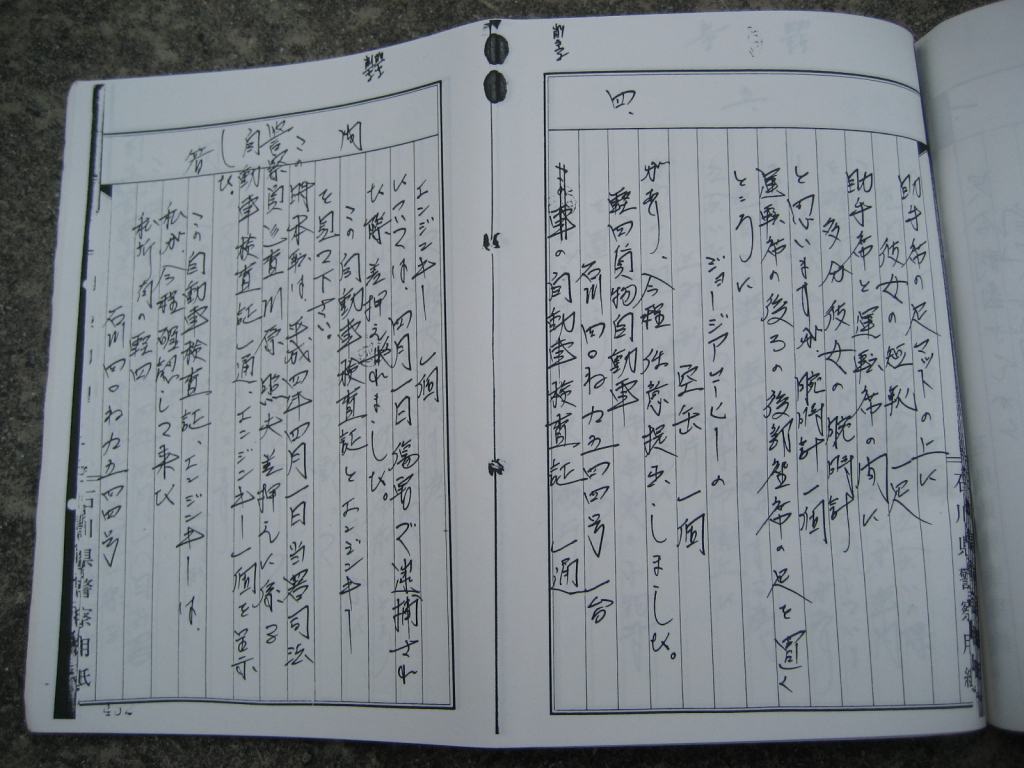 助手席の足マットの上に
彼女の短靴一足
助手席と運転席の間に
多分彼女の腕時計
と思いますが腕時計一個
運転席の後ろの後部座席の足を置く
ところに
ジョージアコーヒーの
空缶一個
があり、今程任意提出しました。
四、
軽四貨物自動車
石川四〇わ九五四四号一台
の自動車検査証一通
エンジンキー一個
については、四月一日傷害で逮捕され
た際、差押えされました。
問
この自動車検査証とエンジンキー
を見て下さい。
この時本職は、平成四年四月一日当署司法
警察員巡査川原照夫差押えに係る
自動車検査証一通、エンジンキー一個を呈示
した。
答
この自動車検査証、エンジンキーは、
私が今程確認して来た
私所有の軽四
石川四〇わ九五四四号
石川県警察用紙
石川県警察用紙